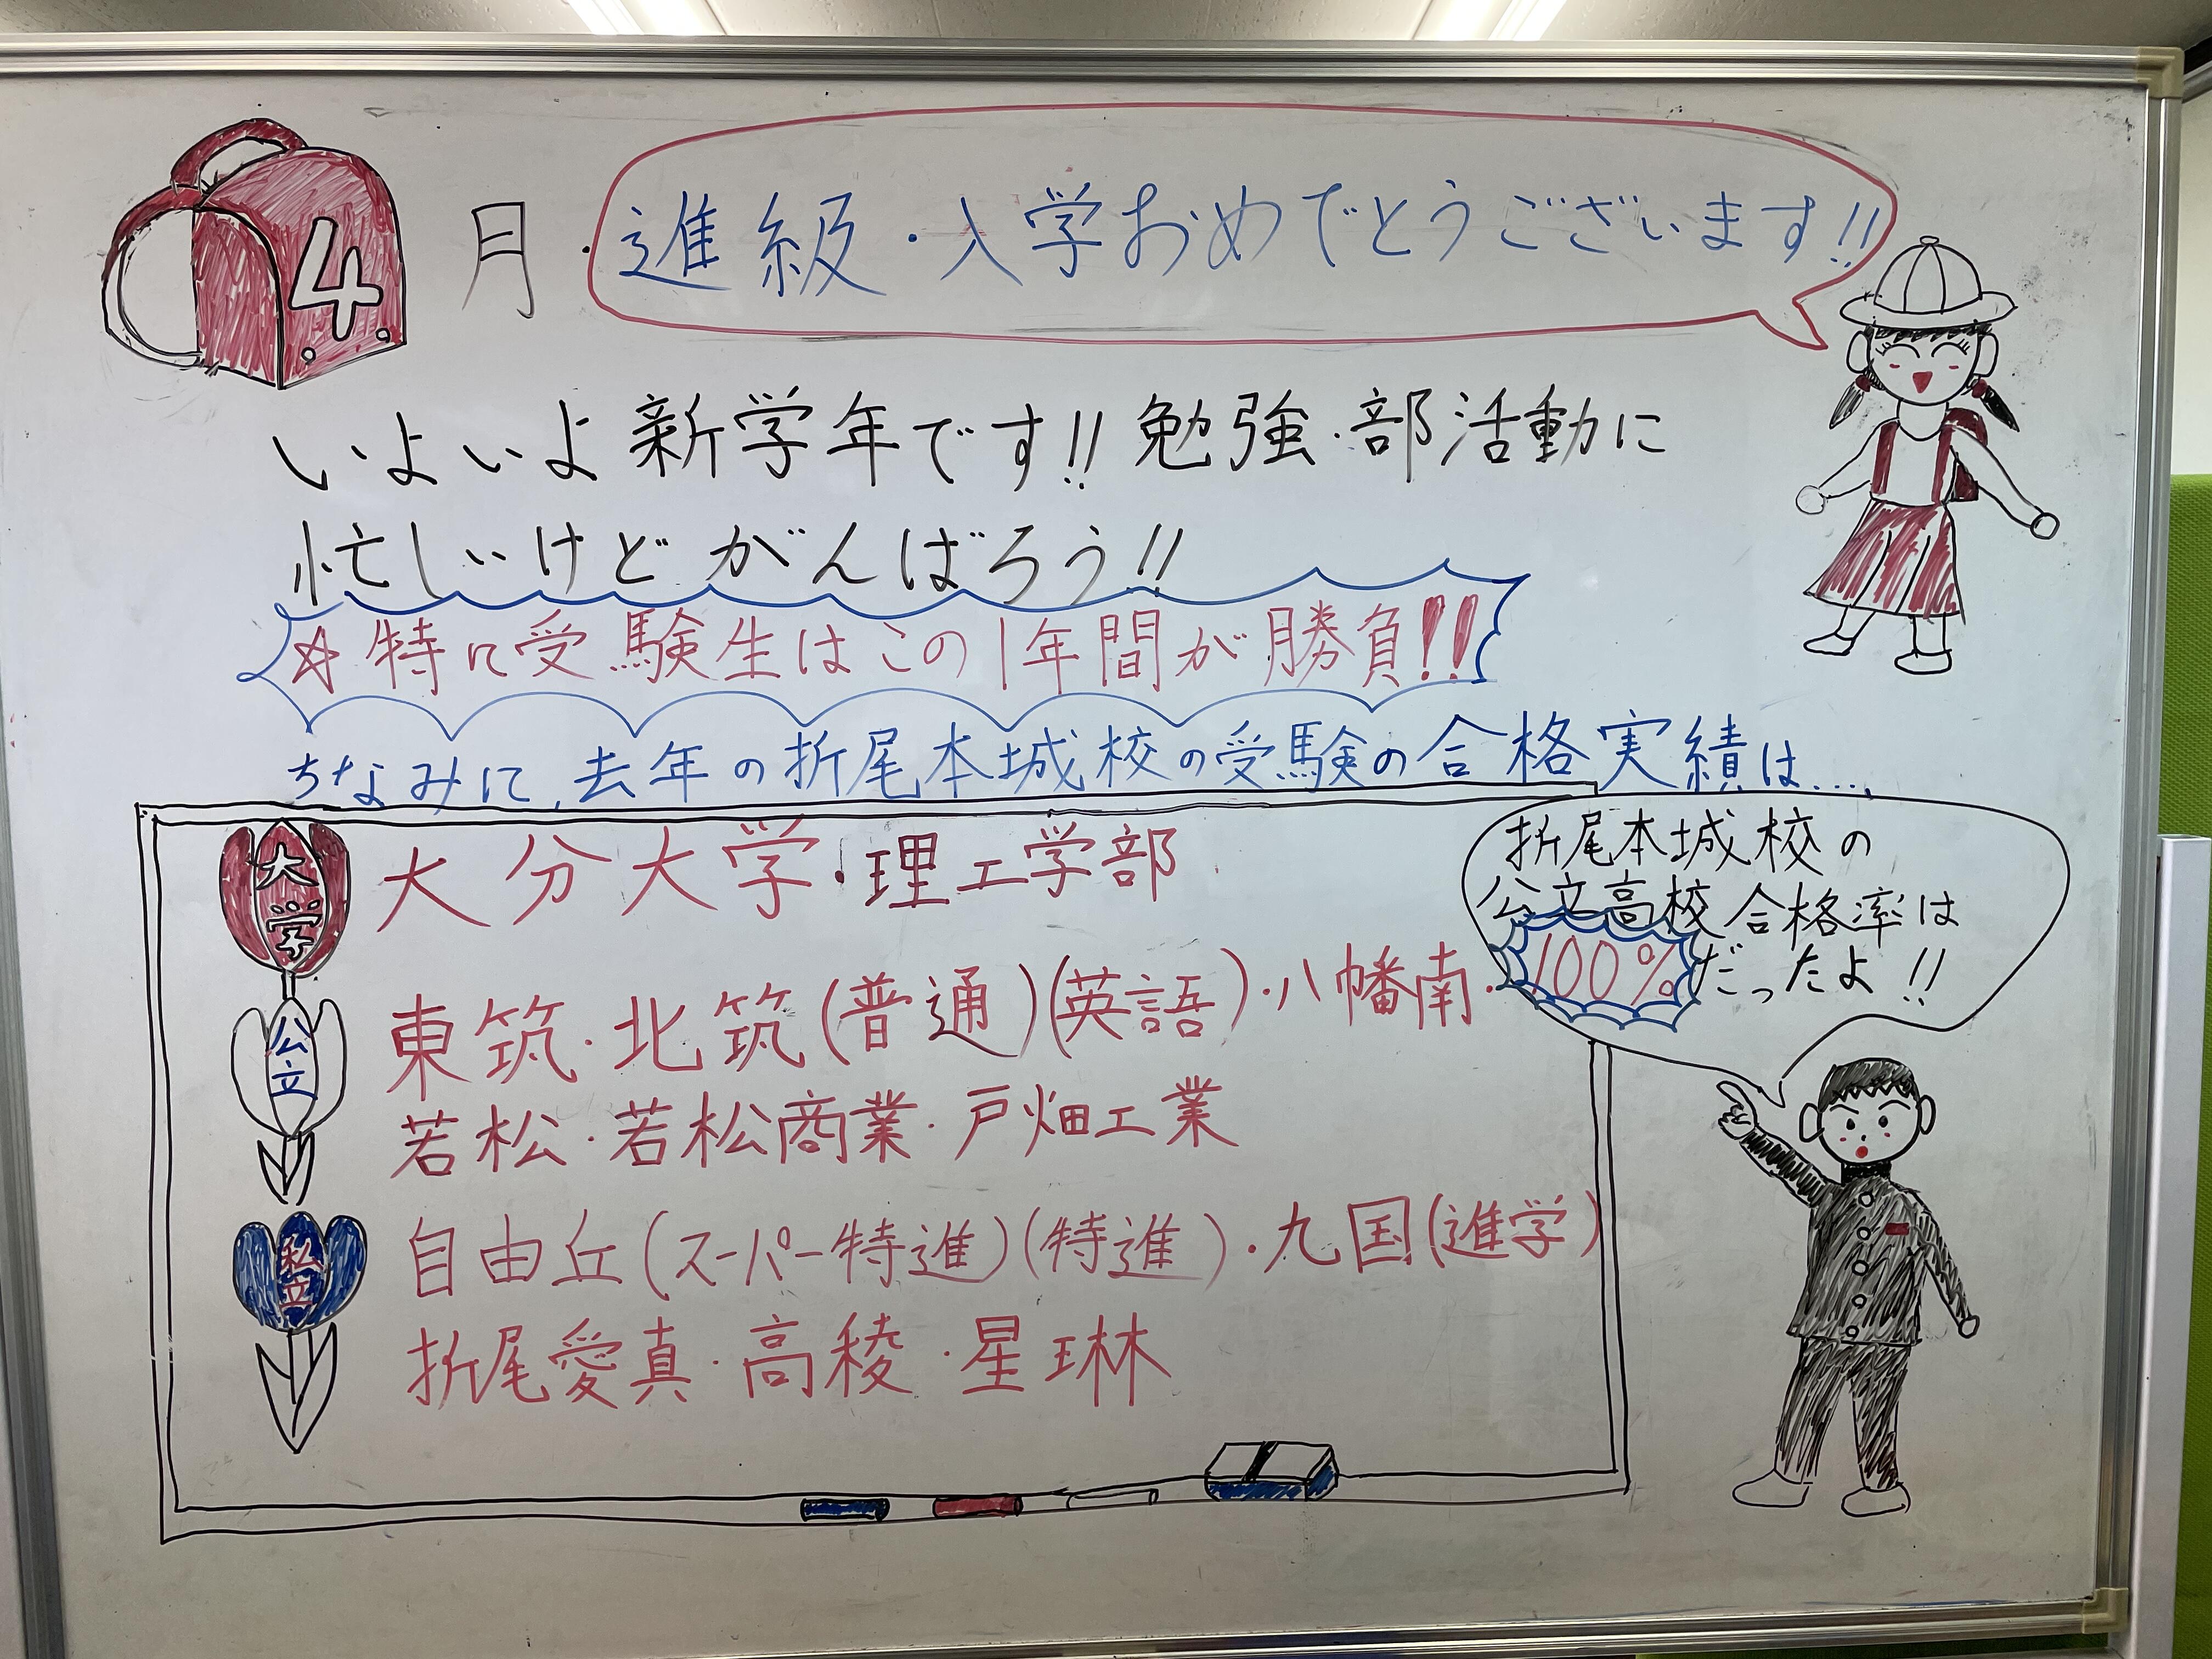 4月・進級・入学おめでとうございます!!
いよいよ新学年です!!勉強・部活動に
忙しいけどがんばろう!!
☆特に受験生はこの1年間が勝負!!
ちなみに、去年の折尾本城校の受験の合格実績は....
大学
大分大学・理工学部
公立
東筑・北筑(普通)(英語)・八幡南・
若松・若松商業・戸畑工業
私立
自由丘(スーパー特進)(特進)・九国(進学)
折尾愛真・高稜・星琳
折尾本城校の
公立高校合格率は
100%だったよ!!